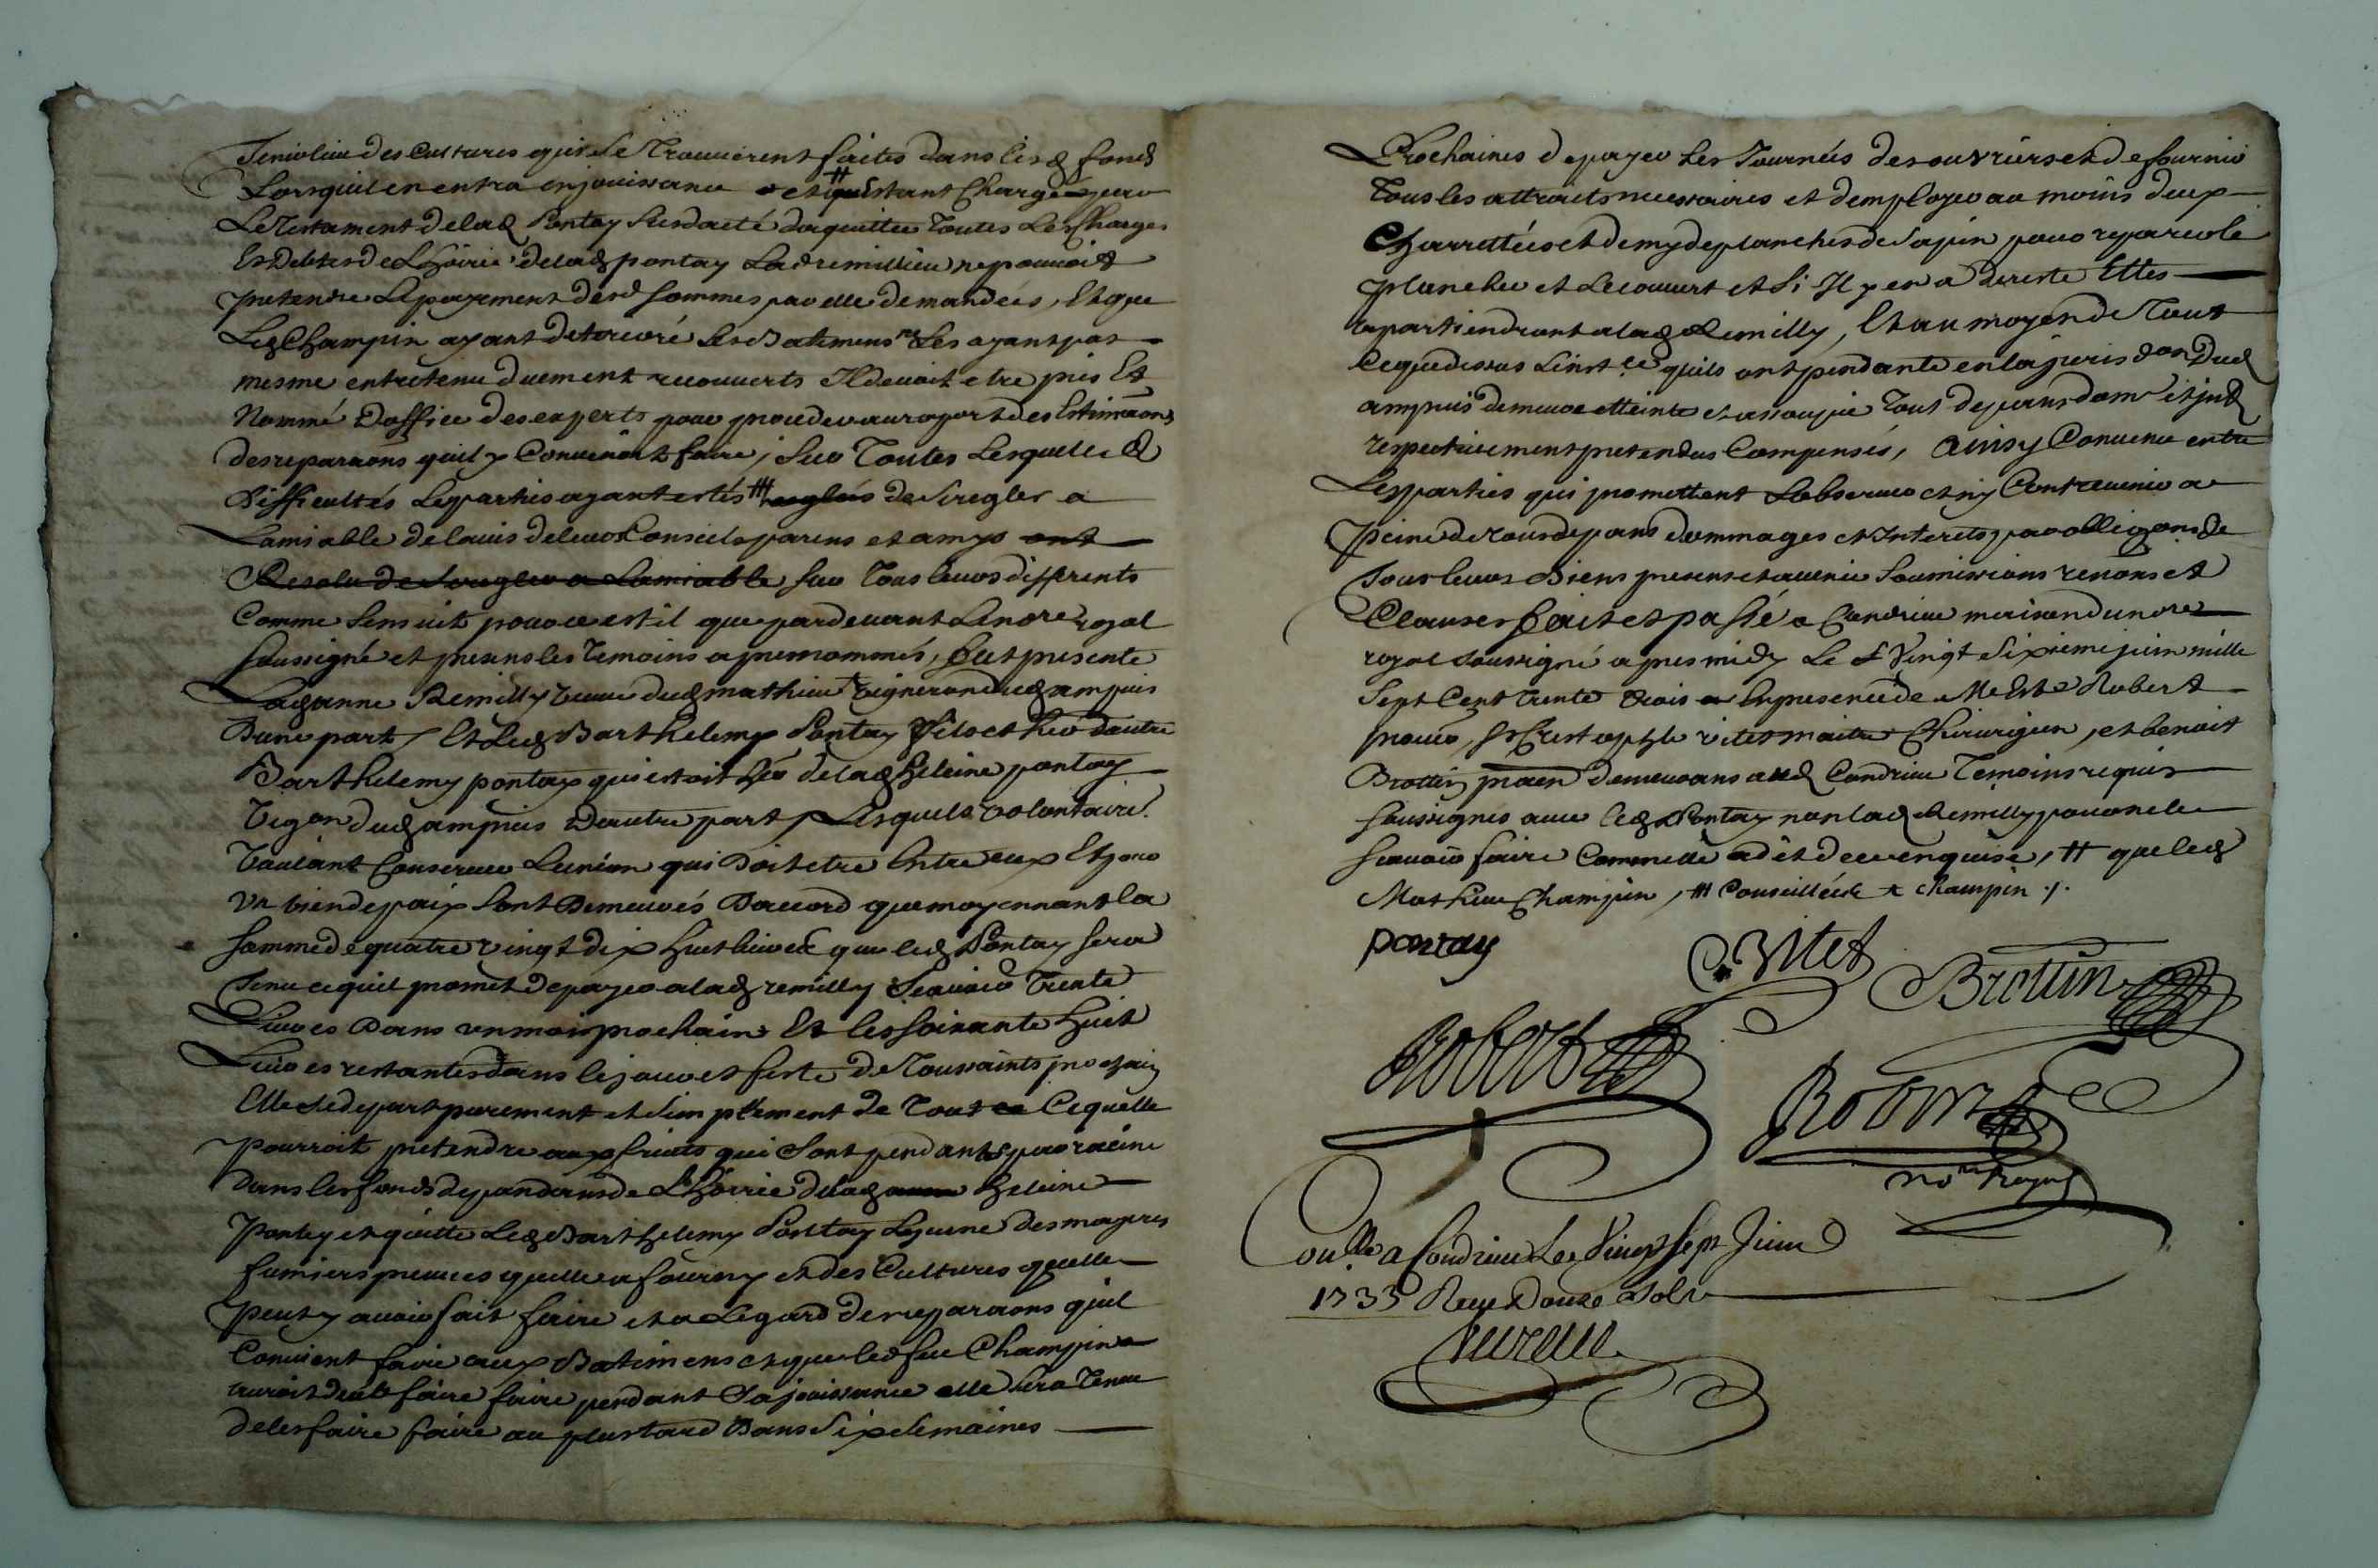 Tenir lieu des Cultures qui se Trouverent faites dans lesd fonds
Lorsquil en entra en jouissance et # estant Chargé par
Le Testament de lad Pontay Susdacté daquitter Toutes Les Charges
Et Debtes de Lhoirie delad pontay Lad remillieu ne pouvoit
pretendre Le payement desd sommes par elle demandées, Et que
Led Champin ayant deterioré les Batimens ne Les ayant pas
mesme entretenu duement recouverts Il devoit etre pris Et
Nommé Doffice des experts pour proceder au raport des Estimaons
des reparaons quil y Convenoit faire, Sur Toutes Lesquelles
Difficultés Les parties ayant estés ## de Se regler a
Lamiable de lavis de leurs Conseils parens et amys ont
Resolu de Se regler a Lamiable sur Tous leurs differents
Comme Sensuit pour ce est il que pardevant Le nore royal
soussigné et presens les Temoins apres nommés, fut presente
Lad anne Remilly veuve dud mathieu + vigneron dud ampuis
Dune part, Et Led Barthelemy Pontay fils et her dautre
Barthelemy pontay qui estoit her de lad heleine pontay
vigon dud ampuis Dautre part, Lesquels volontairemt
Voulant Conserver Lunion qui Doit etre Entre eux Et pour
Un bien de paix sont Demeurés Daccord que moyennant la
somme de quatre vingt dix huit livres que led Pontay sera
Tenu ce quil promet de payer a lad remilly Scavoir Trente
Livres Dans un mois prochain Et les soixante huit
Livres restantes dans le jour et feste de Toussaints prochain
Elle se depart purement et simplement de Tout ce Cequelle
pourroit pretendre aux fruits qui sont pendants par racine
dans les fonds dependans de Lhoirie de lad heleine
Pontey et quitte Led Barthelemy Pontay
fumiers quelle a fourny et des Cultures quelle
peut y avoir fait faire et a Legard des reparaons quil
Convient faire aux Batimens et que led feu Champin
auroit deub faire faire pendant Sa jouissance elle sera Tenue
de les faire faire au plus tard Dans Six Semaines
Prochaines de payer Les Journées des ouvriers et de fournir
Tous les attraits necessaires et demployer au moins deux
Charrettées et demy de planches de Sapin pour reparer le
plancher et Le couvert et Si Il y en a de reste Elles
apartiendront a lad Remilly, Et au moyen de Tout
Ce que dessus Linstce quils ont pendante en la jurisdon Dud
ampuis demeure etteinte et assoupie Tout depans dom et
respectivement pretendus Compensés, Ainsy Convenu entre
Les parties qui promettent Lobserver et ny Contrevenir a
peine de Tous depans dommages et Interets par obligaons de
Tous leurs Biens presens et avenir Soumissions renons et
Clauses fait et passé a Condrieu maison du nore
royal soussigné apres midy Le Vingt Sixieme juin mille
Sept Cent trente trois En presence de Me Robert
Vitet maitre Chirurgien, et benoit
Brottin demeurans aud Condrieu Temoins requis
soussignés avec led Pontay non lad Remilly pour ne le
scavoir faire Comme elle a dit de ce enquise, # que led
Mathieu Champin, ## Conseillée + champin ./.
pontay
C. Vitet
Brottin
Robert
Robin
nore Royal
Coulle a Condrieu Le Vingt Sept Juin
1733 Reçu Douze Sols